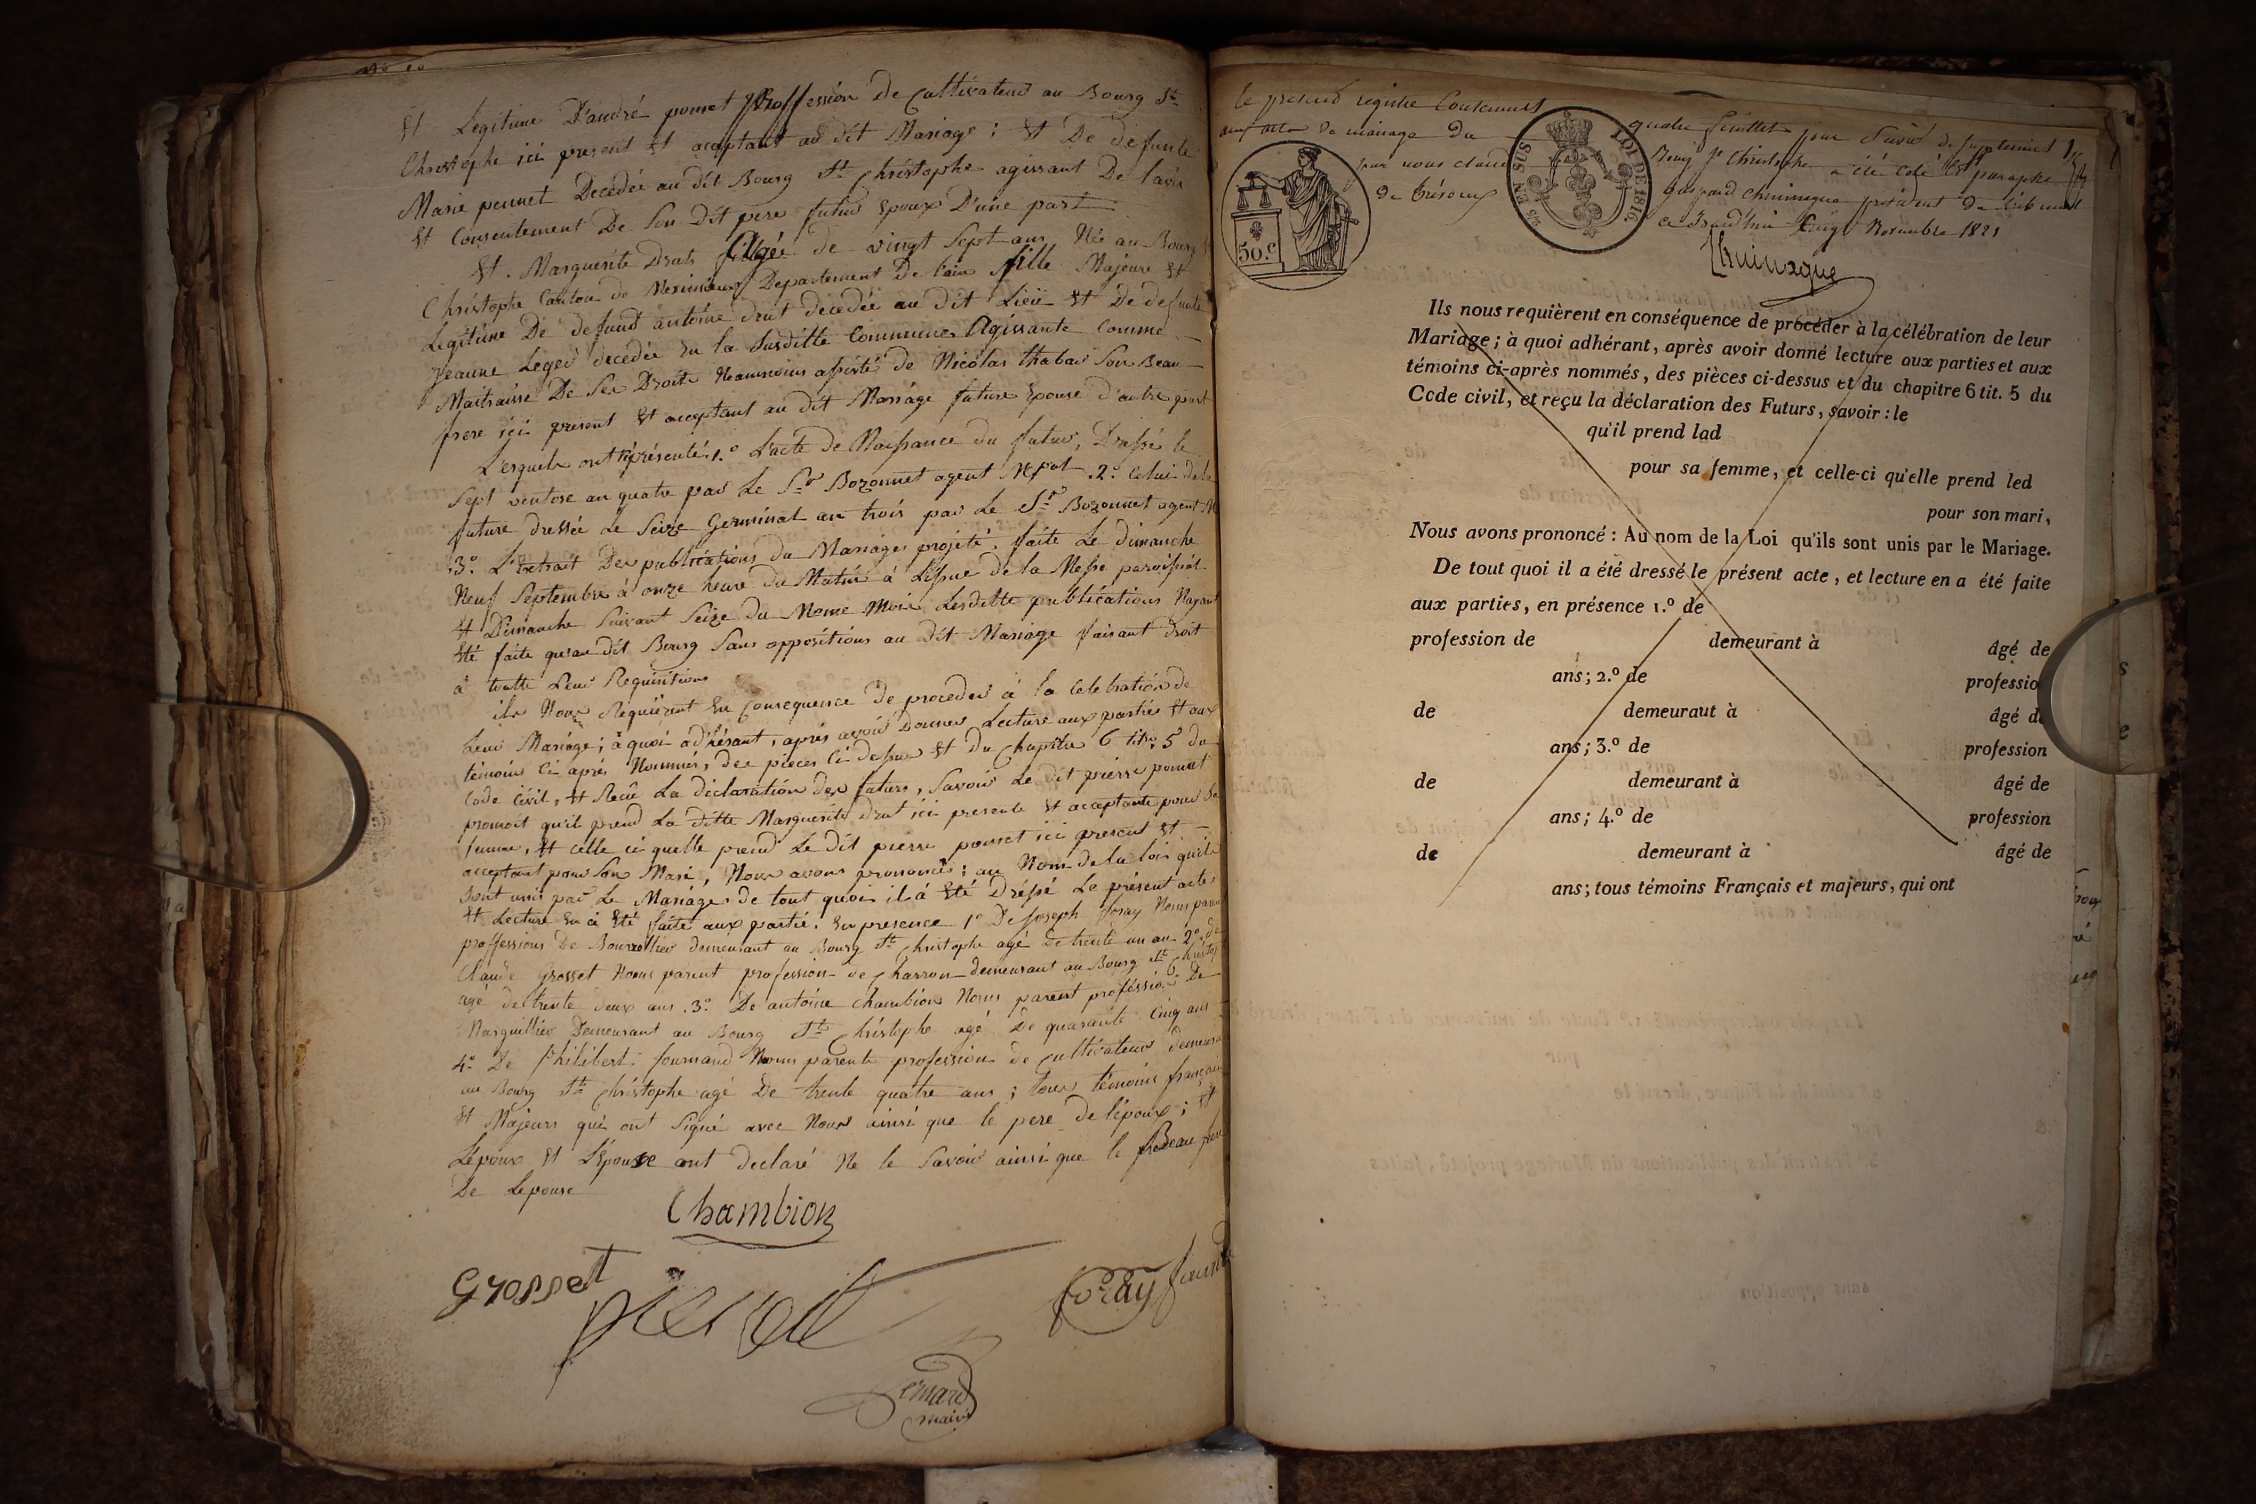 Et Legitime D'andré pomet Proffession de Cultivateur au Bourg St
Christophe ici present Et aceptant au dit Mariage ; Et De defunte
Marie pennet Decedée au dit Bourg St Christophe agissant De l'avis
Et Consentement De Son Dit pere futur Epoux D'une part
Et Marguerite Drut Agée de vingt Sept ans Née au Bourg
Christophe Canton de Meximieux Departement De l'ain fille Majeure Et
Legitime De defunt antoine drut decedée au dit Lieu Et De defunte
jeanne Leger decedée En la Susditte Commune Agissante Comme
Maitraisse De Ses Droits Neanmoins assisté de Nicolas thabar Son Beau
frere ici present Et aceptant au dit Mariage future Epouse d'autre part
Lesquels ont représenté 1.o L'acte de Naissance du futur, Dressé le
Sept ventose an quatre par Le Sr Bozonnet agent Mpal 2.o Celui de la
future dressée Le Seize Germinal an trois par Le Sr Bozonnet agent M
3.o L'extrait Des publications du Mariage projeté faite Le dimanche
Neuf Septembre à onze heure du Matin à L'issue de la Messe paroissial
Et Dimanche Suivant Seize du Meme Mois Lesditte publications Nayant
Eté faite qu'au dit Bourg Sans oppositions au Dit Mariage faisant droit
à toutte Leur Requisitions
ils Nous Requierent En Consequence de proceder à la Celebration de
Leur Mariage ; à quoi adhérant, après avoir Donner Lecture aux parties Et aux
témoins Ci après Nommés, des pieces Ci dessus Et du Chapitre 6 titre 5 du
Code Civil, Et Recue La déclaration des futurs, Savoir Le dit pierre pomet
promoit qu'il prend La ditte Marguerite drut ici presente Et acceptante pour Sa
femme, Et Celle ci quelle prend Le Dit pierre pomet ici present Et
acceptant pour Son Mari, Nous avons prononcés ; au Nom de la loi qu'ils
Sont unis par Le Mariage de tout quoi il à Eté Dressé Le présent acte
Et Lecture En à Eté faite aux partie. En presence 1o De joseph foray Nonsparent
proffessions De Bourrellier demeurant au Bourg St Christophe agé de trente un an 2o de
Claude Grosset Nons parent profession de Charron demeurant au Bourg St Christop
agé de trente deux ans 3.o De antoine Chambion Nons parent proffession De
Marguillier Demeurant au Bourg St Christophe agé De quarante Cinq ans
4.o De Philibert fournand Nons parente profession de Cultivateur demeura
au Bourg St Christophe agé De trente quatre ans ; tous témoins français
Et Majeurs qui ont Signé avec Nous ainsi que le pere de l'epoux ; Et
L'époux Et L'Epouse ont declaré Ne le Savoir ainsi que le Beau frere
De Lepouse
Chambion
Grosset
foray
Bernard
maire
le present registre Contenant quatre feuillets pour Servir de Supplement
aux actes de mariage du Bourg St Christophe a été coté et paraphé
par nous claude gaspard Chuinague président du tribunal
de trévoux ce Jourd'hui Novembre 1821
Chuinague
50.c
EN SUS LOI DE 1816.
Ils nous requièrent en conséquence de procéder à la célébration de leur
Mariage ; à quoi adhérant, après avoir donné lecture aux parties et aux
témoins ci-après nommés, des pièces ci-dessus et du chapitre 6 tit. 5 du
Code civil, et reçu la déclaration des Futurs, savoir : le
qu'il prend lad
pour sa femme, et celle-ci qu'elle prend led
pour son mari,
Nous avons prononcé : Au nom de la Loi qu'ils sont unis par le Mariage.
De tout quoi il a été dressé le présent acte, et lecture en a été faite
aux parties, en présence 1.o de
profession de demeurant à âgé de
ans ; 2.o de professio
de demeuraut à âgé de
ans ; 3.o de profession
de demeurant à âgé de
ans ; 4.o de profession
de demeurant à âgé de
ans ; tous témoins Français et majeurs, qui ont